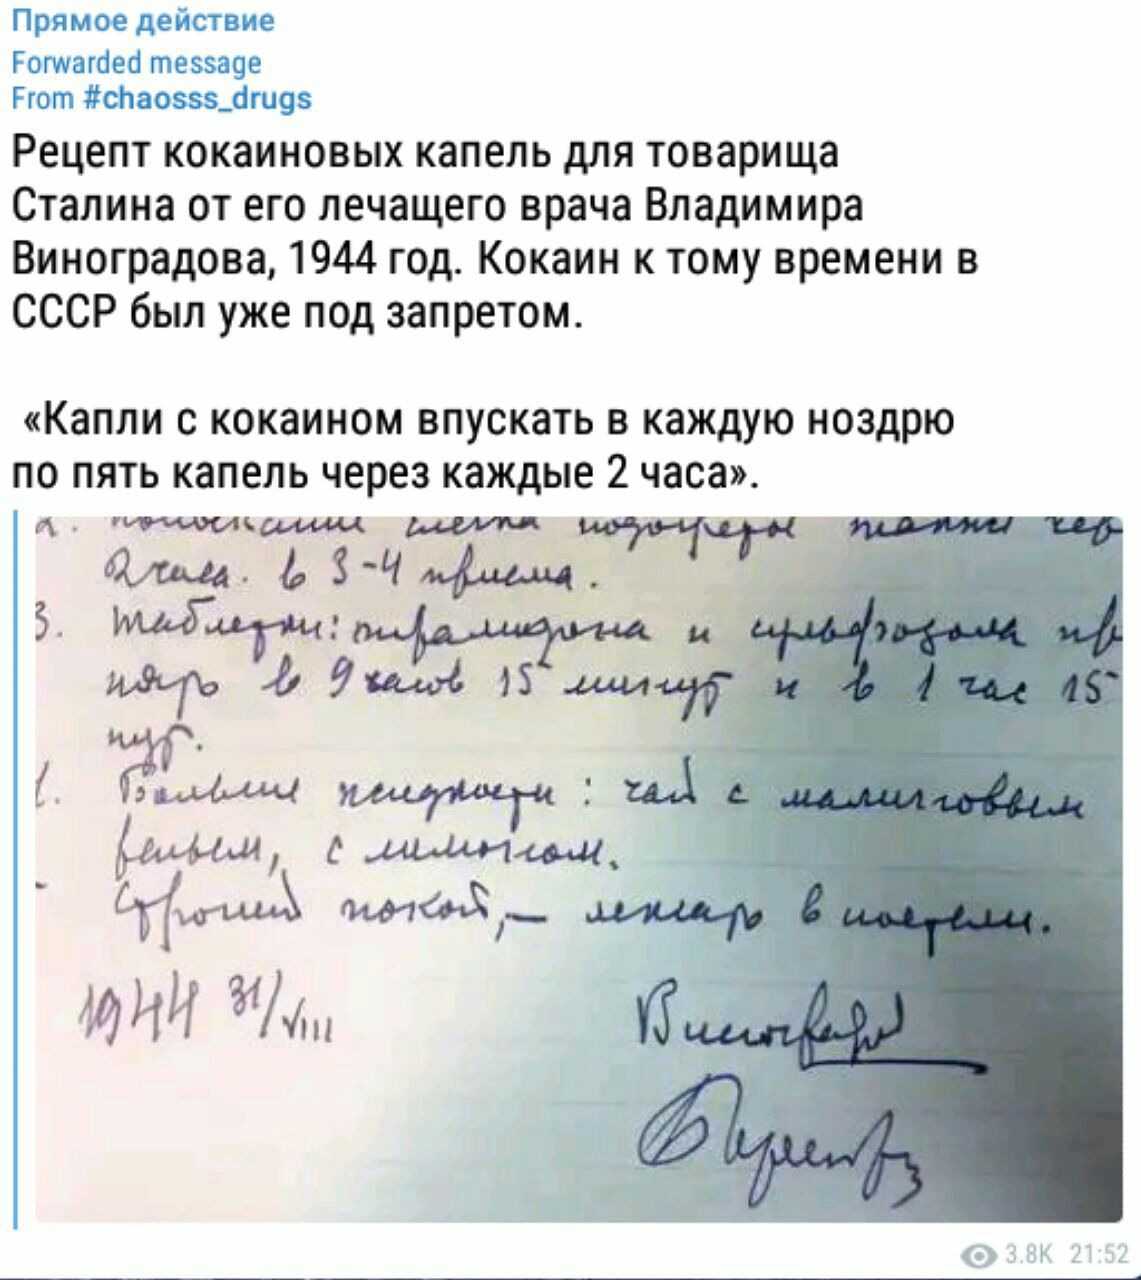 Прямое действие
Forwarded message
From #chaosss_drugs
Рецепт кокаиновых капель для товарища
Сталина от его лечащего врача Владимира
Виноградова, 1944 год. Кокаин к тому времени в
СССР был уже под запретом.
«Капли с кокаином впускать в каждую ноздрю
по пять капель через каждые 2 часа».
2. полоскание слегка
2 часа. в 3-4 приема.
3. Таблетки: пирамидона и сульфозола
в 9 часов 15 минут и в 1 час 15
нут.
Больше жидкости: чай с малиновым
реньем, с лимоном.
Строгий покой, — лежать в постели.
1944 31/VIII
Виноградов
3.8K 21:52